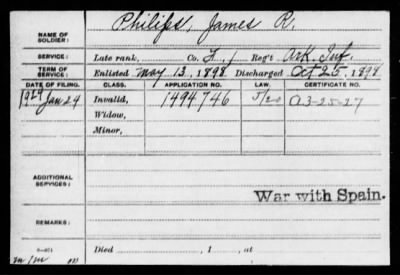 NAME OF SOLDIER: Philips, James R.
SERVICE: Late rank, Co. L, 1 Reg't Ark. Inf.
TERM OF SERVICE: Enlisted May 13, 1898 Discharged Oct 25, 1898
DATE OF FILING. CLASS. APPLICATION NO. LAW. CERTIFICATE NO.
1924 Jan 24 Invalid, 1494746 5/20 A 3-25-27
Widow,
Minor,
ADDITIONAL SERVICES:
War with Spain.
REMARKS:
Died , 1 , at